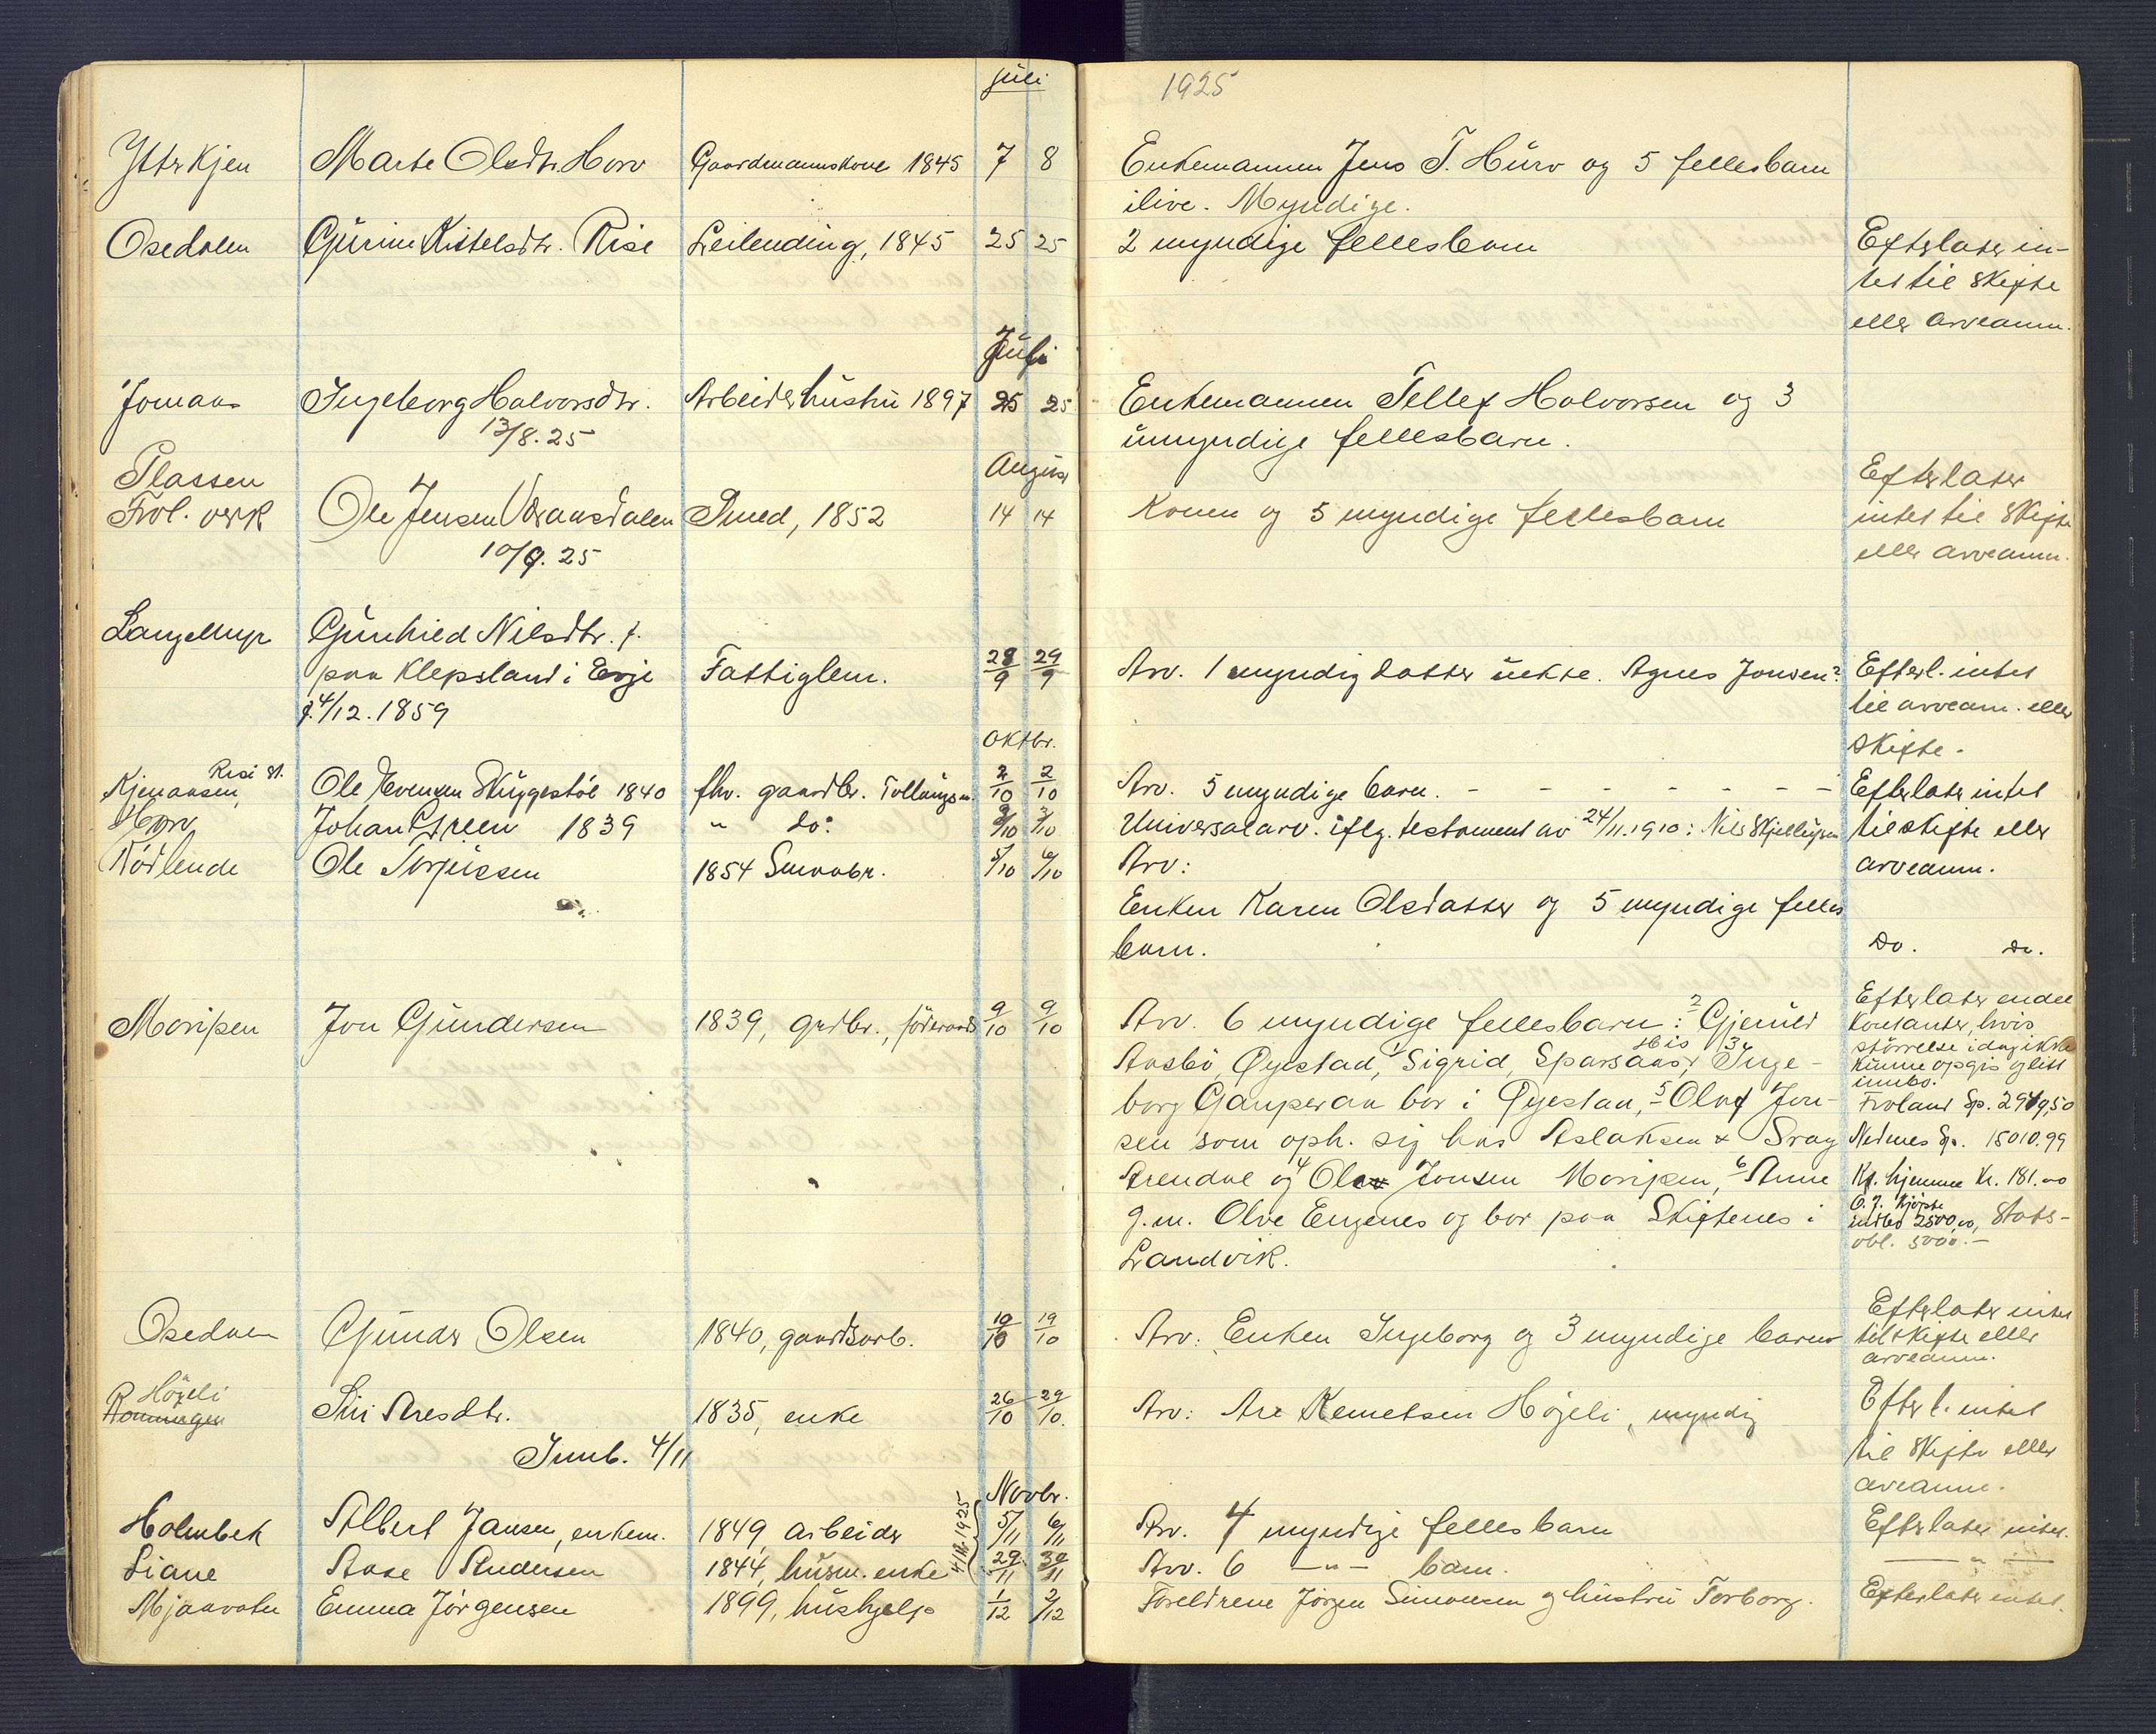 juli
1925
Ytre Kjen Marte Olsdtr. Horv Gaardmannskone 1845 7 8 Enkemannen Jens T. Hurv og 5 fellesbarn
ilive. Myndige.
Osedalen Gurine Kittelsdtr. Rise Leilending, 1845 25 25 2 myndige fellesbarn Efterlater in-
tet til skifte
eller arveanm.
Juli
Jomaas Ingeborg Halvorsdtr. Arbeiderhustru 1897 25 25 Enkemannen Tellef Halvorsen og 3
13/8.25 umyndige fellesbarn.
Plassen August Efterlater
Frol. verk Ole Jensen Vransdalen Smed, 1852 14 14 Konen og 5 myndige fellesbarn intet til skifte
10/9.25 eller arveanm.
Langemyr Gunhild Nilsdtr. f.
paa Klepsland i Evje Fattiglem. 28/9 29/9 Arv. 1 myndig datter uekte. Agnes Jonsen? Efterl. intet
f. 4/12.1859 til arveanm. eller
Oktbr. skifte.
Risi st.
Kjenaasen, Ole Evensen Skuggestøl 1840 fhv. gaardbr. 2/10 2/10 Arv. 5 myndige barn. - - - - - - - Efterlater intet
Horv Johan Green 1839 " do: 3/10 3/10 Universalarv. iflg. testament av 24/11.1910: Nils til skifte eller
Rødlende Ole Torjussen 1854 Smaabr. 5/10 6/10 Arv: arveanm.
Enken Karen Olsdatter og 5 myndige felles
barn. Do. Do.
Moripen Jon Gundersen 1839, grdbr., føderaads 9/10 9/10 Arv. 6 myndige fellesbarn: 2 Gjeruld Efterlater endel
kontanter, hvis
His størrelse idag ikke
Aasbø, Øyestad, 1 Sigrid, Sparsaas, 3 Inge- kunne opgis og litt
innbo.
borg Gauperaa bor i Øyestad, 5 Olaf Jon- Froland Sp. 2949,50
sen som oph. sig hos Aslaksen & Svay Nedenes Sp. 15010.99
Arendal og 4 Olav Jonsen Moripen, 6 Anne Kt. hjemme kr. 181.00
g.m. Olve Engenes og bor paa Skiftenes i O.J. kjøpte
indbo 2500,00, Stats-
Landvik. obl. 5000.-
Osedalen Gunder Olsen 1840, gaardsarb. 19/10 19/10 Arv: Enken Ingeborg og 3 myndige barn Efterlater intet
til skifte eller
arveanm.
Høgeli
Rommingen Siri Aresdtr. 1835, enke 26/10 29/10. Arv: Are Kemetsen Høgeli, myndig Efterl. intet
Innb. 4/11 til skifte eller
Novbr. arveanm.
Holmbek Albert Jansen, enkem. 1849, arbeider 5/11 6/11 Arv. 4 myndige fellesbarn Efterlater intet.
Liane Aase Andersen 1844, husm. enke 29/11 30/11 Arv. 6 -"- barn. -"-
Mjaavatn Emma Jørgensen 1899, hushjelp 1/12 2/12 Foreldrene Jørgen Simonsen og hustru Torborg. Efterlater intet.